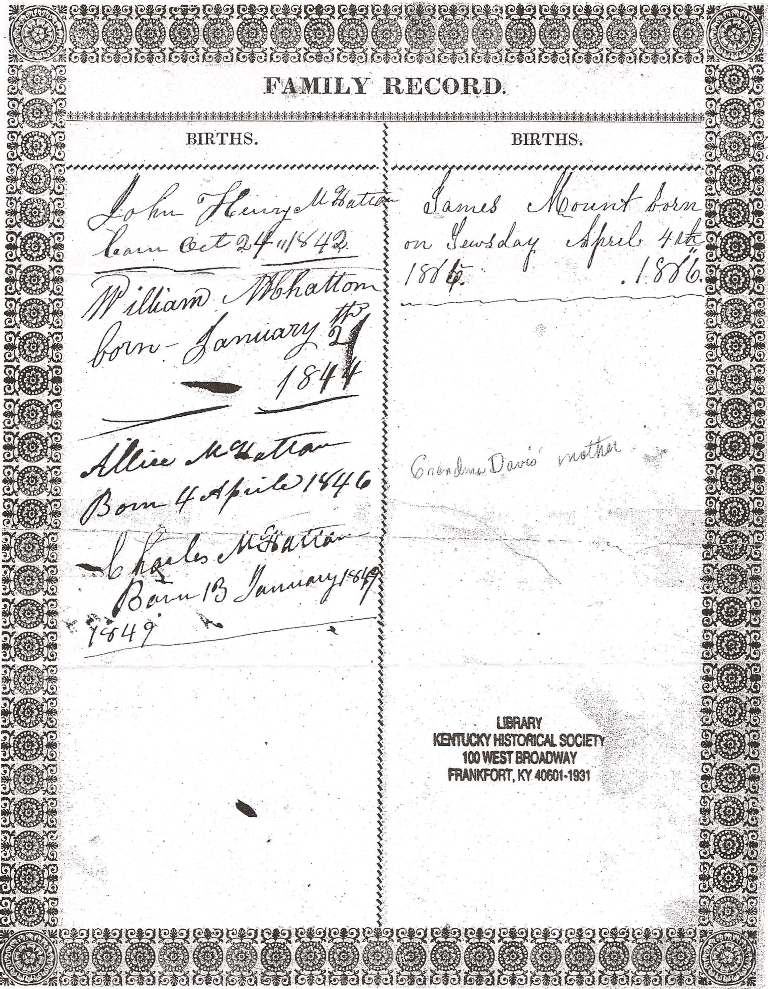 FAMILY RECORD.
BIRTHS.
John Henry McHatton
born Oct 24 1842
William McChattom
born - January 21th
1844
Allice McHatton
Born 4 Aprile 1846
Charles McHatton
Born 13 January 1849
1849
BIRTHS.
James Mount born
on Tewsday April 4th
1886.
Grandma Davis' mother
LIBRARY
KENTUCKY HISTORICAL SOCIETY
100 WEST BROADWAY
FRANKFORT, KY 40601-1931